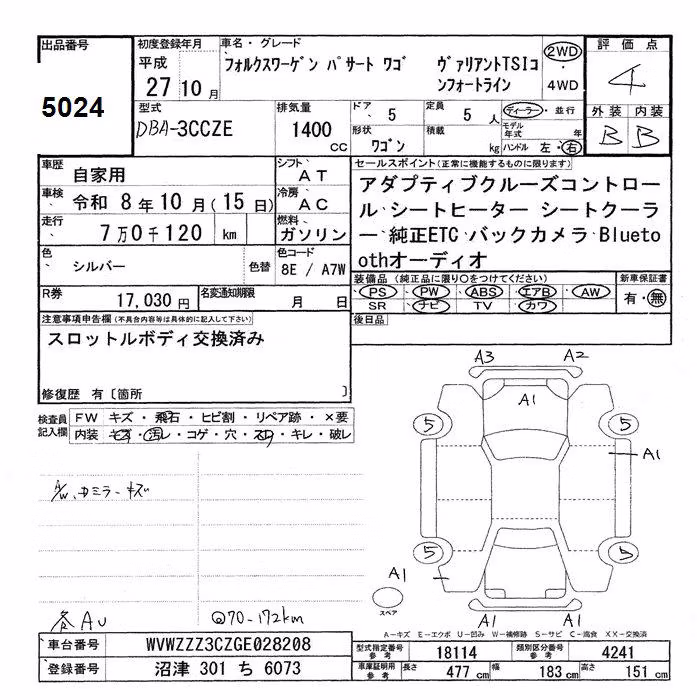 出品番号
5024
初度登録年月
平成
27 10 月
車名・グレード
フォルクスワーゲン パサート ワゴ
ヴァリアントTSIコンフォートライン
2WD
4WD
評価点
4
外装 内装
B B
型式
DBA-3CCZE
排気量
1400
cc
ドア
5
定員
5 人
形状
ワゴン
積載
kg
ディーラー・並行
モデル年式 年
ハンドル 左・右
車歴
自家用
シフト
AT
車検
令和 8 年 10 月(15 日)
冷房
AC
走行
7 万0 千120 km
燃料
ガソリン
色
シルバー
色替
色コード
8E / A7W
R券
17,030 円
名変通知期限
月 日
セールスポイント(正常に機能するものに限ります)
アダプティブクルーズコントロー
ル、シートヒーター シートクーラ
ー、純正ETC、バックカメラ、Blueto
othオーディオ
装備品(純正品に限り○をつけてください)
PS PW ABS エアB AW
SR ナビ TV カワ
新車保証書
有・無
後日品
注意事項申告欄(不具合内容等は具体的に記入して下さい)
スロットルボディ交換済み
修復歴 有〔箇所 〕
検査員記入欄
FW キズ・飛石・ヒビ割・リペア跡・×要
内装 キズ・汚レ・コゲ・穴・スレ・キレ・破レ
A/W、ミラーキズ
各AU
@70-172km
A3
A2
A1
5
5
A1
5
5
A1
スペア
A1
A1
A-キズ E-エクボ U-凹み W-補修跡 S-サビ C-腐食 XX-交換済
車台番号
WVWZZZ3CZGE028208
登録番号
沼津 301 ち 6073
型式指定番号 参考
18114
類別区分番号 参考
4241
車庫証明用 参考
長さ 477 cm
幅 183 cm
高さ 151 cm